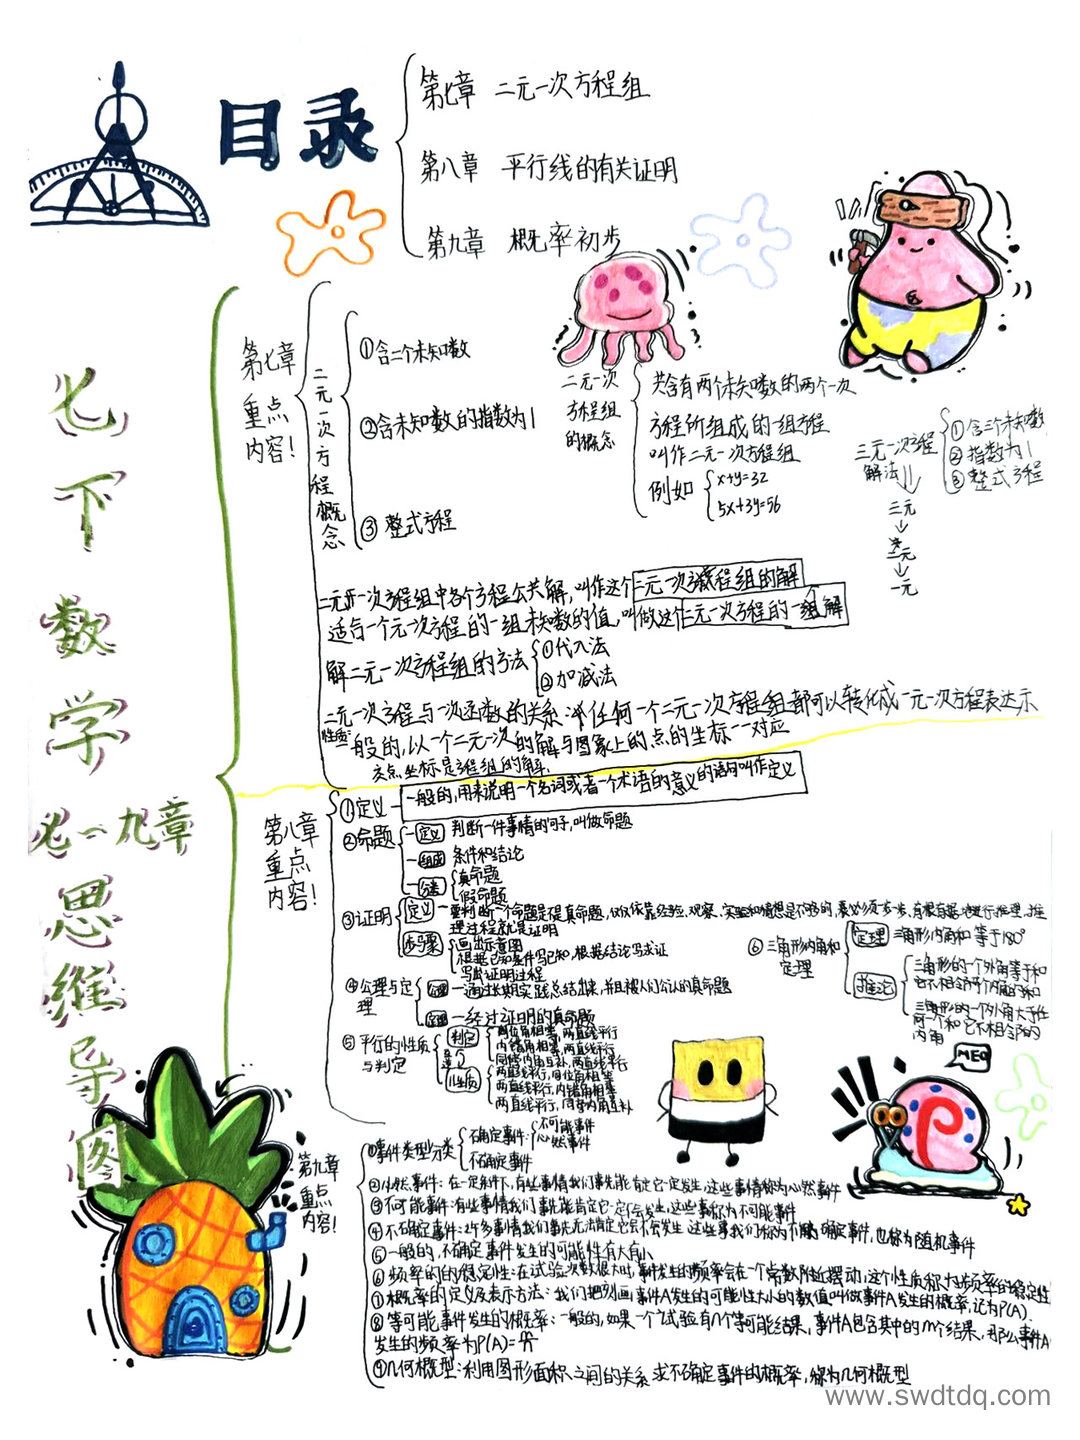 目录
第七章 二元一次方程组
第八章 平行线的有关证明
第九章 概率初步
七下数学
七一九章
思维导图
第七章
重点
内容！
二元一次方程概念
①含二个未知数
②含未知数的指数为1
③整式方程
二元一次
方程组
的概念
共含有两个未知数的两个一次
方程所组成的一组方程
叫作二元一次方程组
例如
x+y=32
5x+3y=56
三元一次方程
解法
①含三个未知数
②指数为1
③整式方程
三元
↓
二元
↓
一元
二元一次方程组中各个方程公共解，叫作这个二元一次方程组的解
适合一个元一次方程的一组未知数的值，叫做这个二元一次方程的一组解
解二元一次方程组的方法
①代入法
②加减法
二元一次方程与一次函数的关系:任何一个二元一次方程组都可以转化成一元一次方程表达示
性质:一般的，以一个二元一次的解与图象上的点的坐标一一对应
交点坐标是方程组的解.
第八章
重点
内容！
①定义 一般的，用来说明一个名词或者一个术语的意义的语句叫作定义
②命题
定义 判断一件事情的句子，叫做命题
组成 条件和结论
分类
真命题
假命题
③证明
定义 要判断一个命题是不是真命题，仅仅依靠经验，观察，实验和猜想是不够的，必须步步，有根有据地进行推理，推
理过程就是证明
步骤
画出示意图
根据已知条件写已知，根据结论写求证
写出证明过程
④公理与定
理
公理 通过长期实践总结出来，并且被人们公认的真命题
定理 经过证明的真命题
⑤平行的性质
与判定
判定
同位角相等，两直线平行
内错角相等，两直线平行
同旁内角互补，两直线平行
性质
两直线平行，同位角相等
两直线平行，内错角相等
两直线平行，同旁内角互补
⑥三角形内角和
定理
定理 三角形内角和等于180°
推论
三角形的一个外角等于和
它不相邻两个内角的和
三角形的一个外角大于任
何一个和它不相邻的
内角
MEO
第九章
重点
内容！
①事件类型分类
确定事件:
不可能事件
必然事件
不确定事件
②必然事件:在一定条件下，有些事情我们事先能肯定它一定发生，这些事情称为必然事件
③不可能事件:有些事情我们事先能肯定它一定不会发生，这些事称为不可能事件
④不确定事件:许多事情我们事先无法肯定它会不会发生，这些事我们称为不确定事件，也称为随机事件
⑤一般的，不确定事件发生的可能性有大有小
⑥频率的的稳定性:在试验次数很大时，事件发生的频率会在一个常数附近摆动，这个性质称为频率的稳定性
①概率的定义及表示方法:我们把刻画事件A发生的可能性大小的数值叫做事件A发生的概率，记为P(A).
⑧等可能事件发生的概率:一般的，如果一个试验有n个等可能结果，事件A包含其中的m个结果，那么事件A
发生的频率为P(A)=m/n
⑨几何概型:利用图形面积之间的关系求不确定事件的概率，称为几何概型
www.swdtdq.com